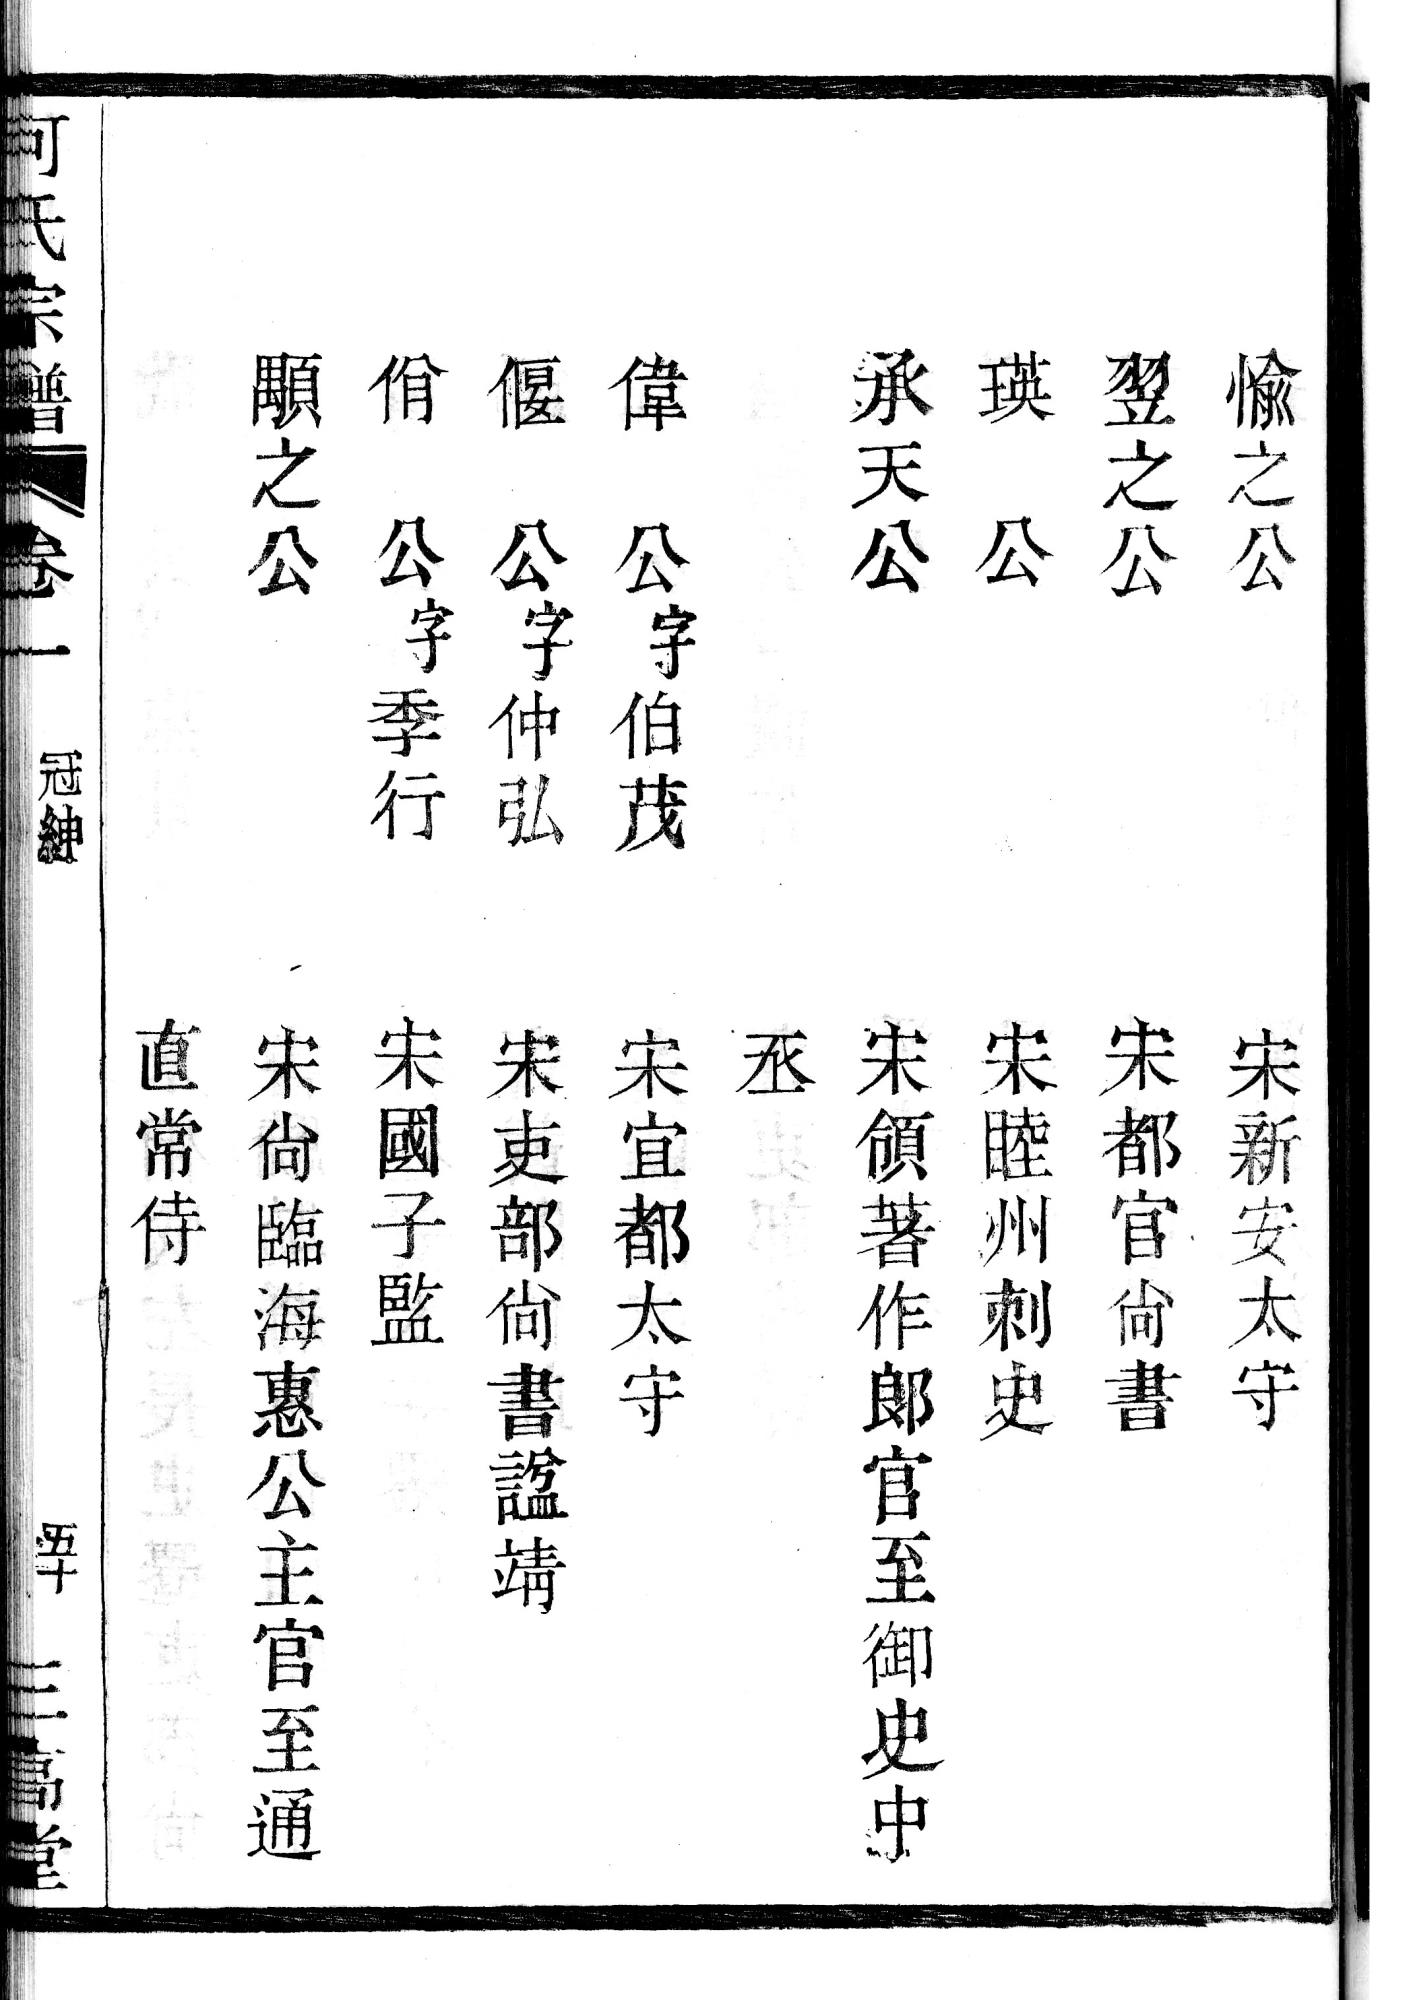 愉之公　宋新安太守
翌之公　宋都官尙書
瑛　公　宋睦州刺史
承天公　宋頜著作郎官至御史中
丞
偉　公字伯茂　宋宜都太守
偃　公字仲弘　宋吏部尙書諡靖
佾　公字季行　宋國子監
顒之公　宋尙臨海惠公主官至通
直常侍
何氏宗譜　卷一　冠紳　五十　三高堂